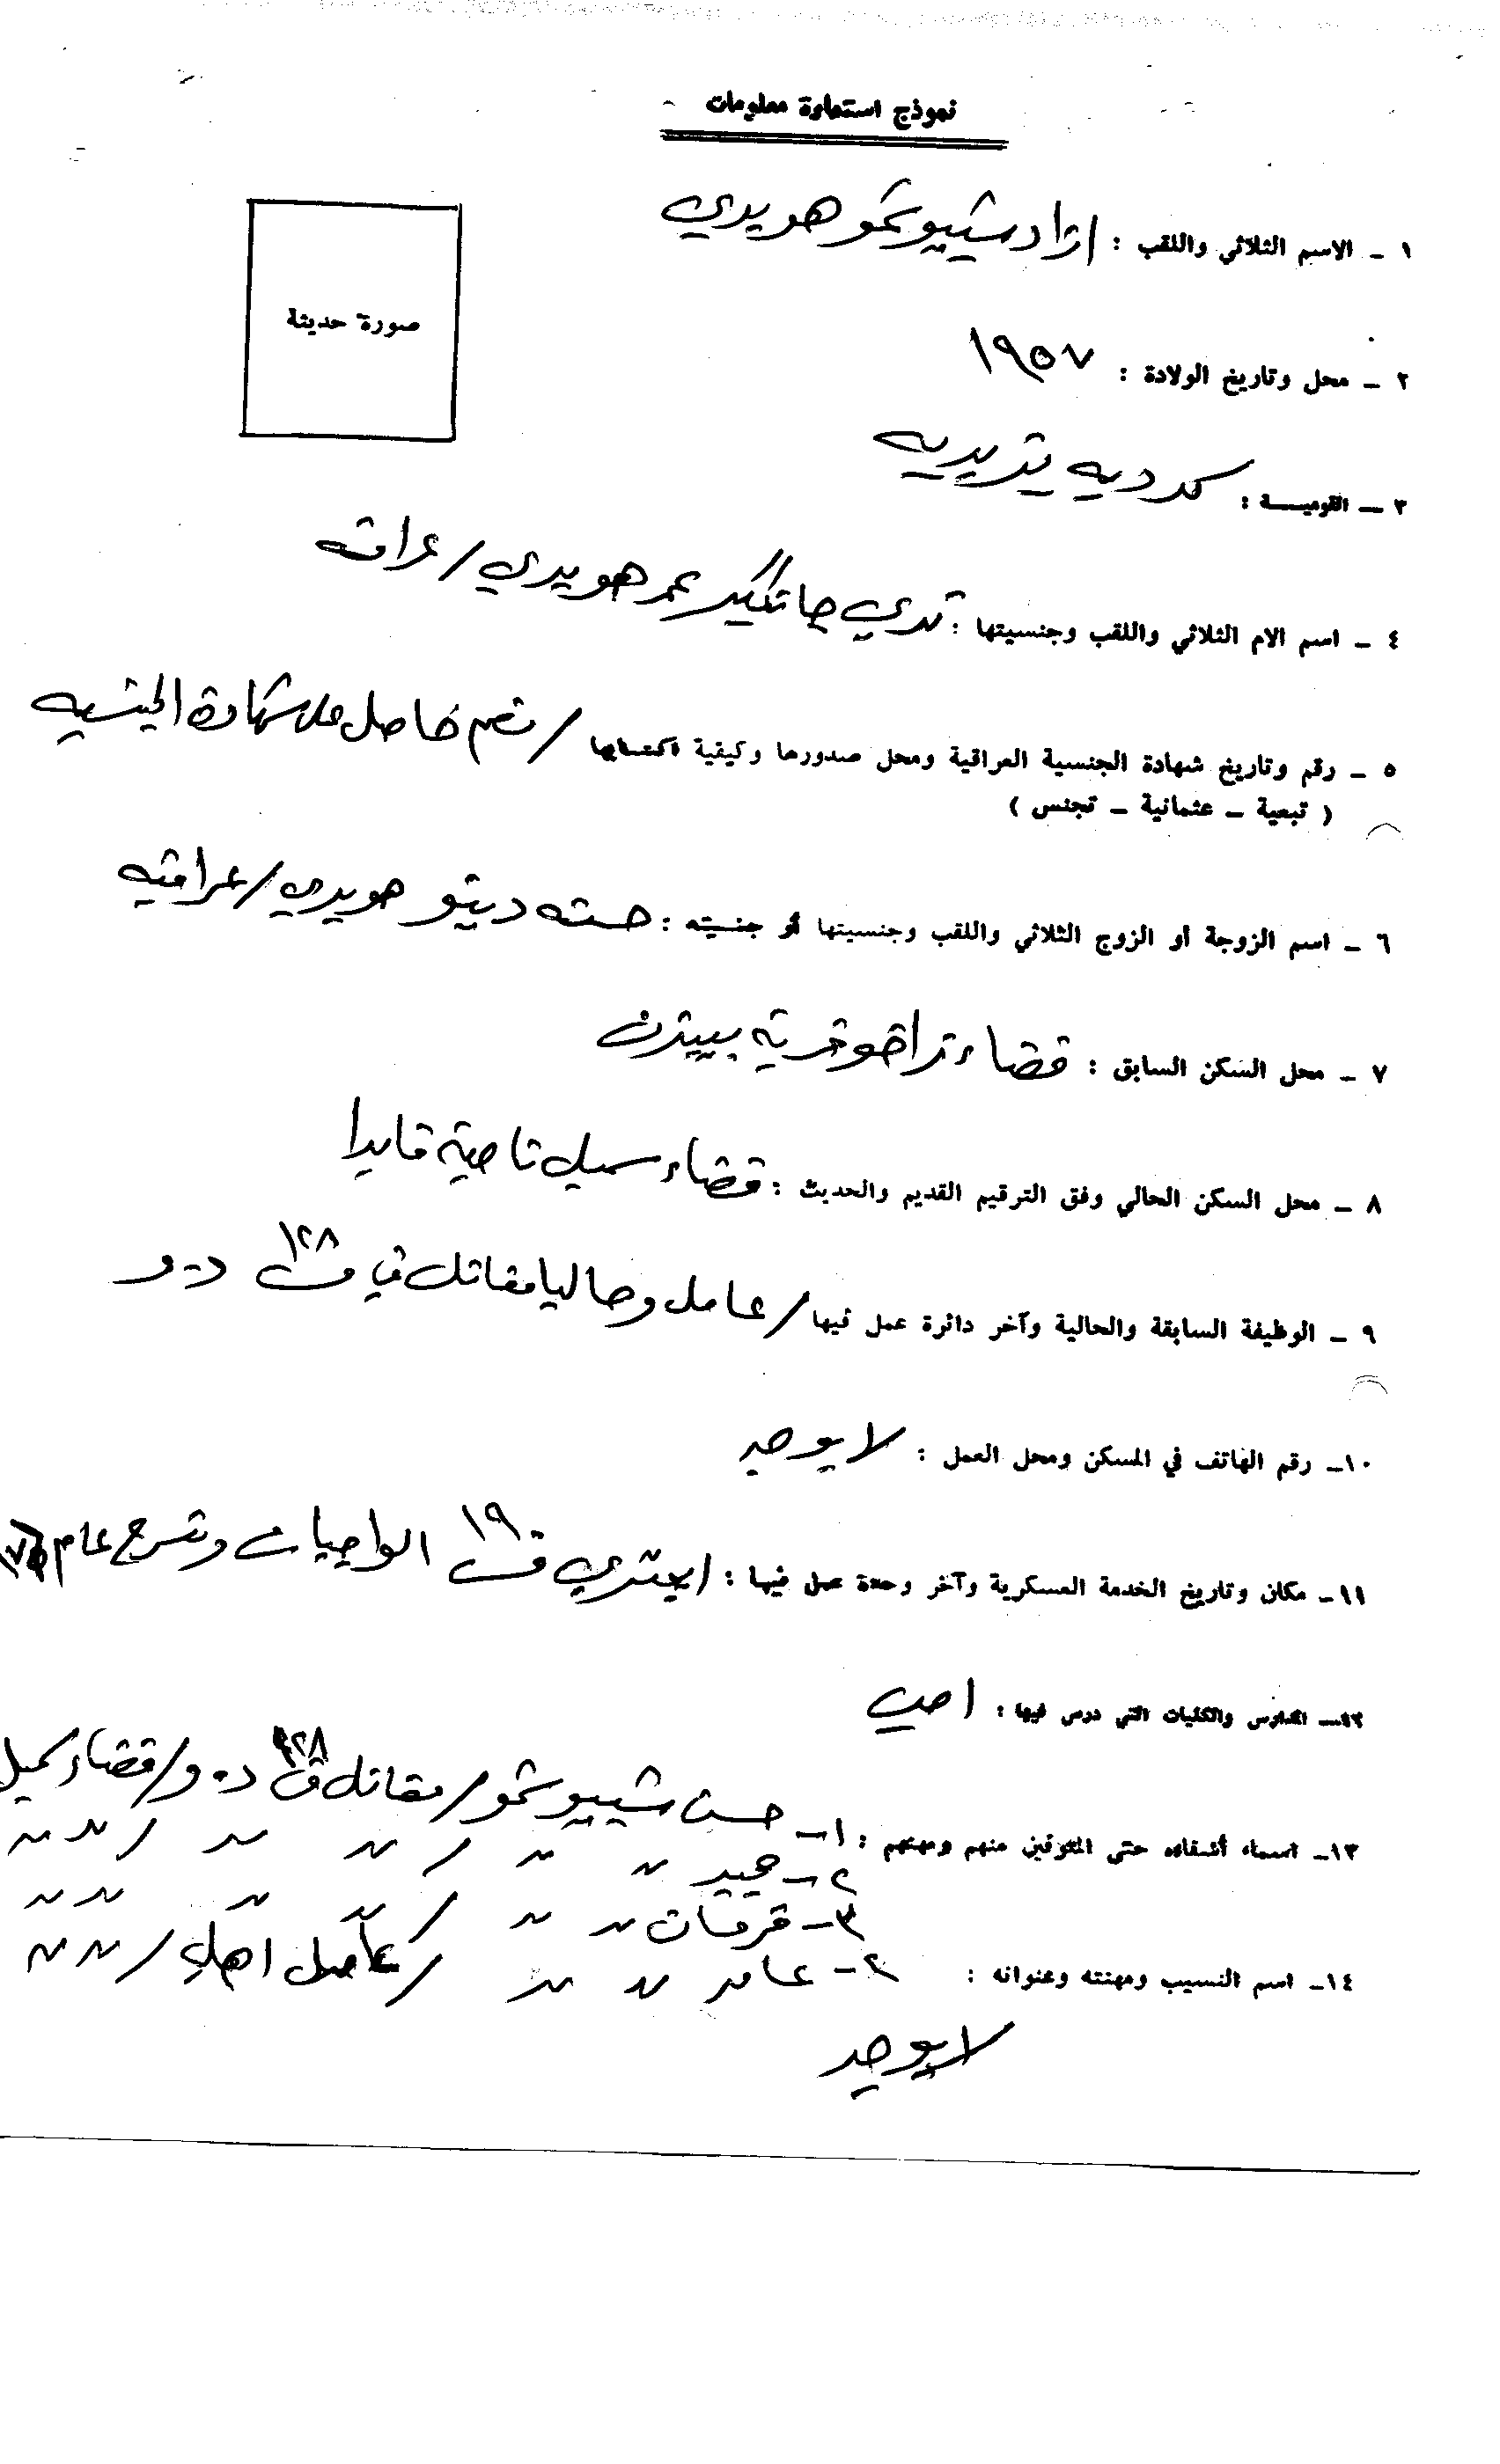 نموذج استمارة معلومات
صورة حديثة
١ - الاسم الثلاثي واللقب : ازاد شيبو شمو هويدي
٢ - محل وتاريخ الولادة : ١٩٥٧
٣ - القوميـــة : كرديه يزيديه
٤ - اسم الام الثلاثي واللقب وجنسيتها : هويدي / عراقيه
٥ - رقم وتاريخ شهادة الجنسية العراقية ومحل صدورها وكيفية اكتسابها / نعم حاصل على شهادة الجنسيه
( تبعية - عثمانية - تجنس )
٦ - اسم الزوجة أو الزوج الثلاثي واللقب وجنسيتها أو جنسيته : هويدي / عراقيه
٧ - محل السكن السابق : قضاء زاخو قرية
٨ - محل السكن الحالي وفق الترقيم القديم والحديث : قضاء سميل ناحية فايدا
٩ - الوظيفة السابقة والحالية وآخر دائرة عمل فيها / عامل وحاليا مقاتل في ف ١٢٨ د.و
١٠- رقم الهاتف في المسكن ومحل العمل : لا يوجد
١١- مكان وتاريخ الخدمة العسكرية وآخر وحدة عمل فيها : ف ١٩ الواجبات وتسرح عام
١٢- المدارس والكليات التي درس فيها : امي
١٣- اسماء أشقاءه حتى المتوفين منهم ومهنهم : ١- حسن شيبو شمو / مقاتل ف ١٢٨ د.و / قضاء سميل
٢- " " / " " / " "
٣- " " / " " / " "
١٤- اسم النسيب ومهنته وعنوانه :
٤- عامر " " / اهلي / " "
لا يوجد